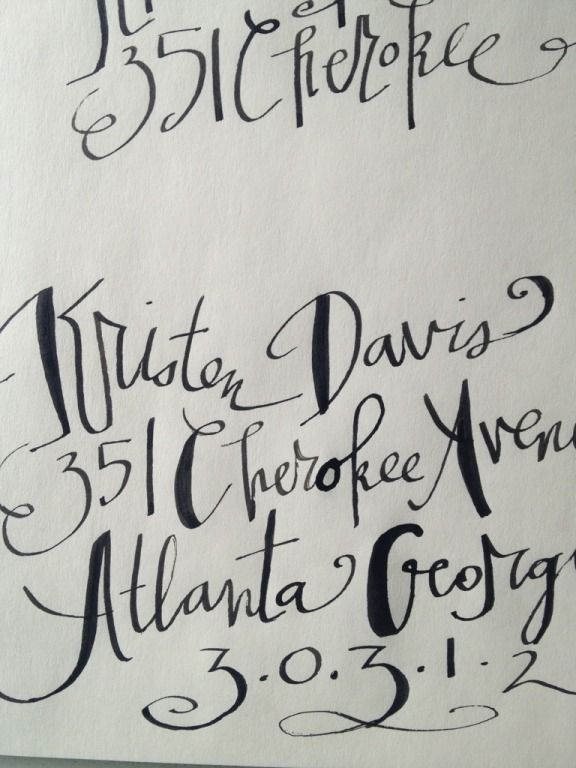 351 Cherokee
Kristen Davis
351 Cherokee Aven
Atlanta Georgi
3.0.3.1.2